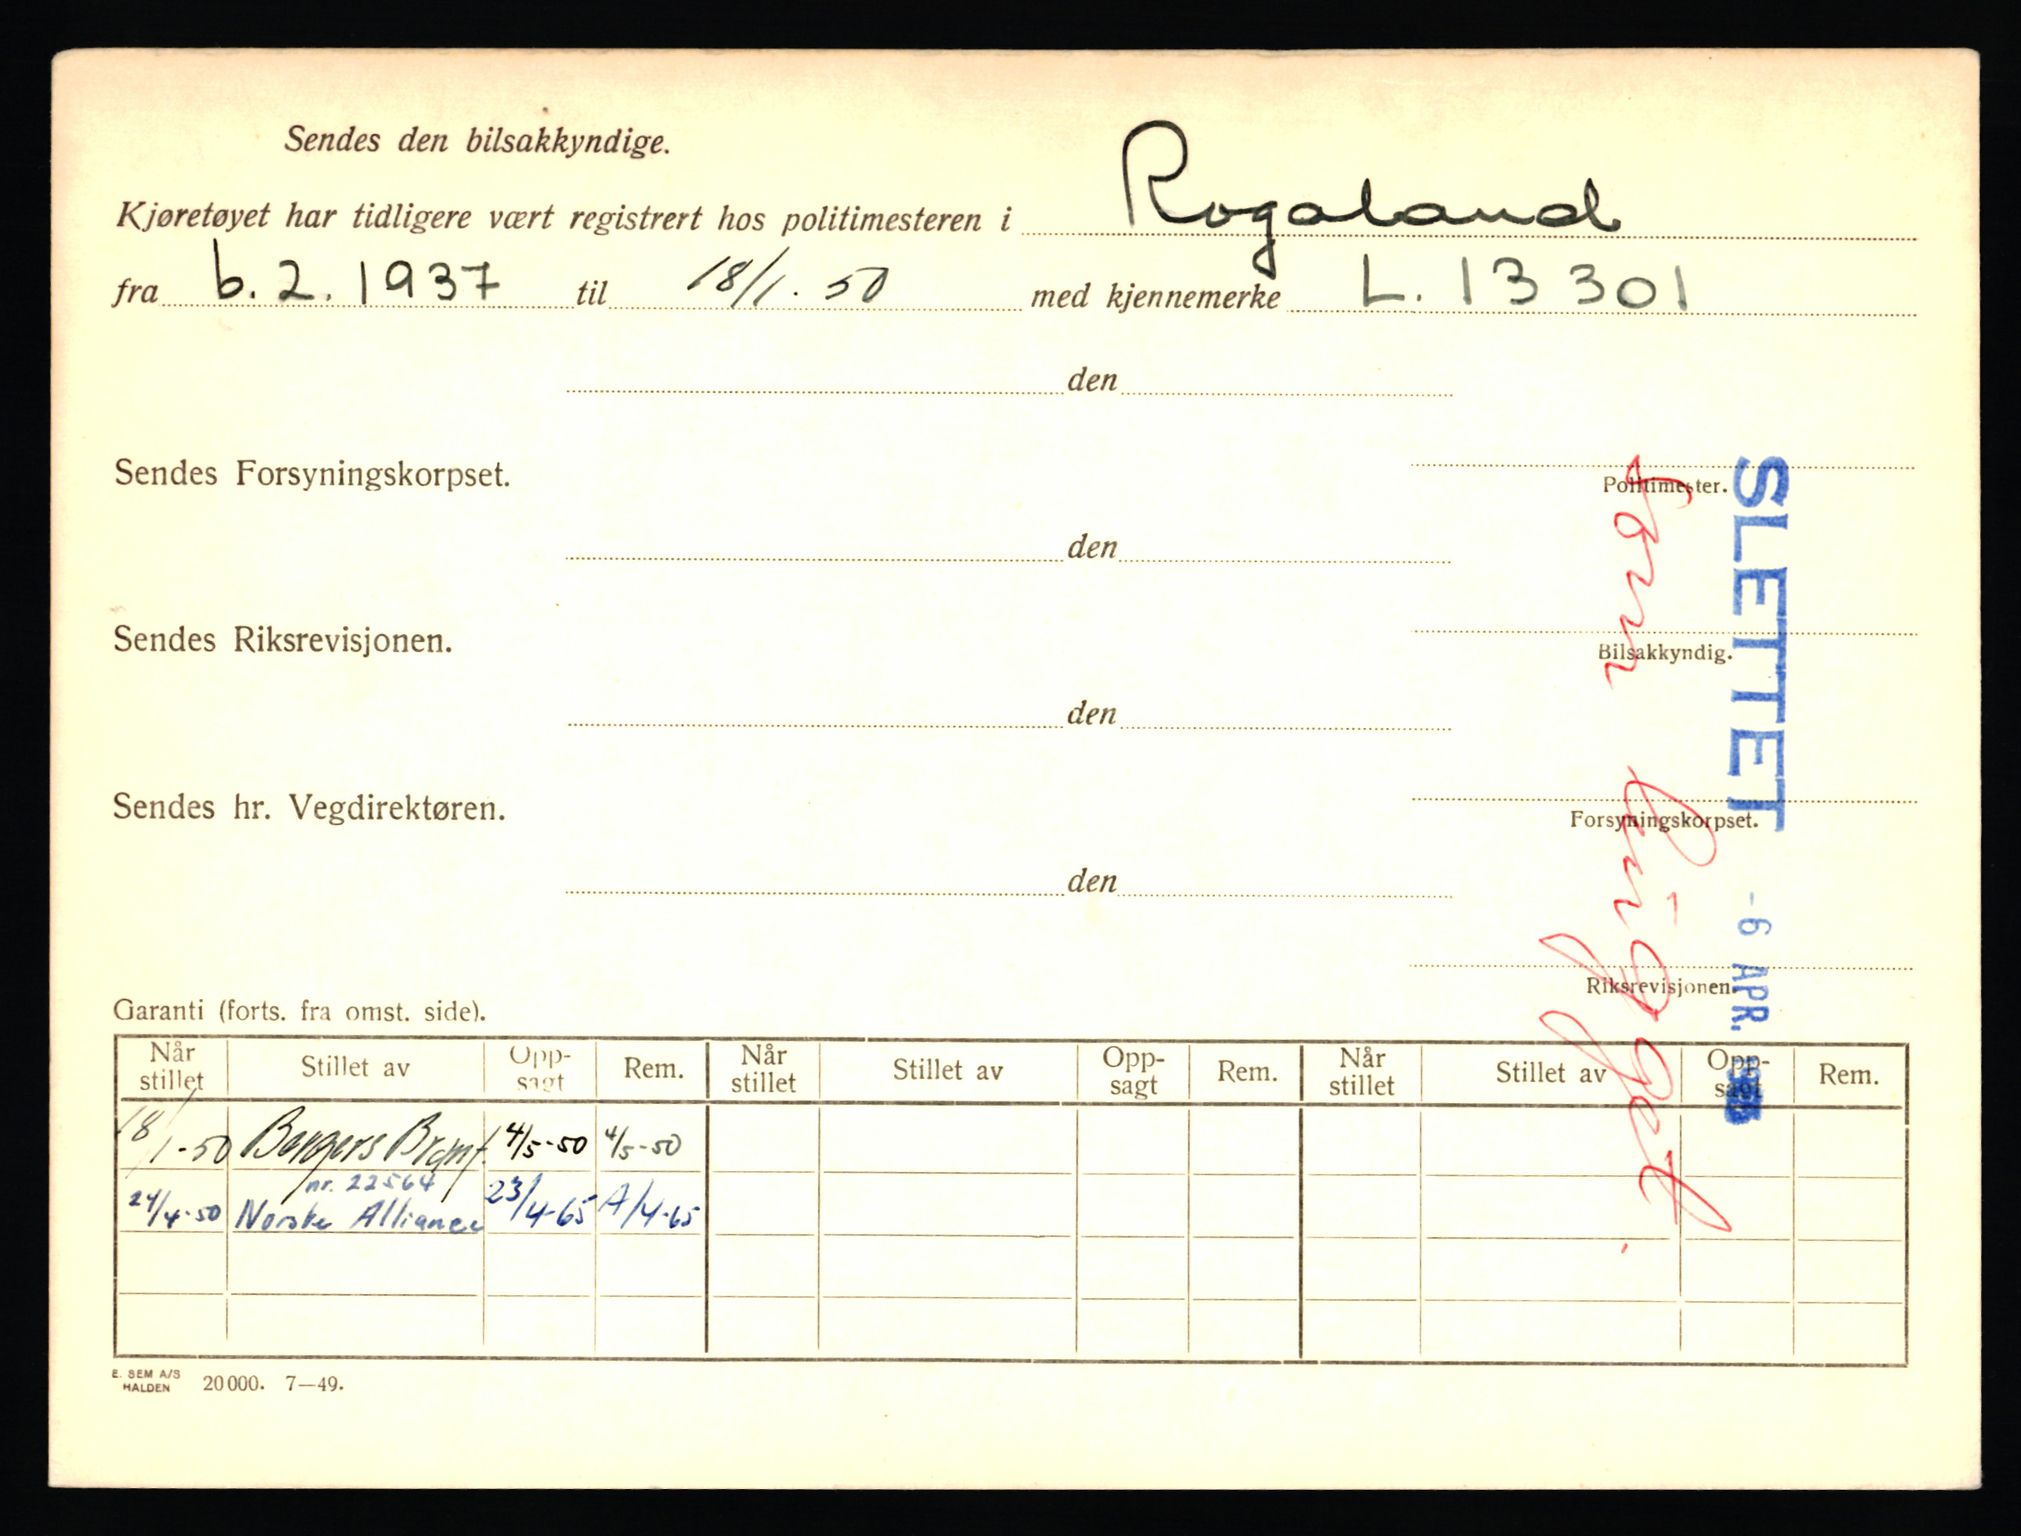 Sendes den bilsakkyndige.
Kjøretøyet har tidligere vært registrert hos politimesteren i Rogaland
fra 6.2.1937 til 18/1.50 med kjennemerke L.13301
den
Sendes Forsyningskorpset.
Politimester.
den
Sendes Riksrevisjonen.
Bilsakkyndig.
den
Sendes hr. Vegdirektøren.
Forsyningskorpset.
den
Riksrevisjonen.
SLETTET
-6 APR.
som brügget.
Garanti (forts. fra omst. side).
Når stillet Stillet av Opp-sagt Rem. Når stillet Stillet av Opp-sagt Rem. Når stillet Stillet av Opp-sagt Rem.
18/1-50 Borgers Branf. 4/5-50 4/5-50
nr. 22564
24/4-50 Norske Alliance 23/4-65 /4-65
E. SEM A/S
HALDEN 20000. 7—49.